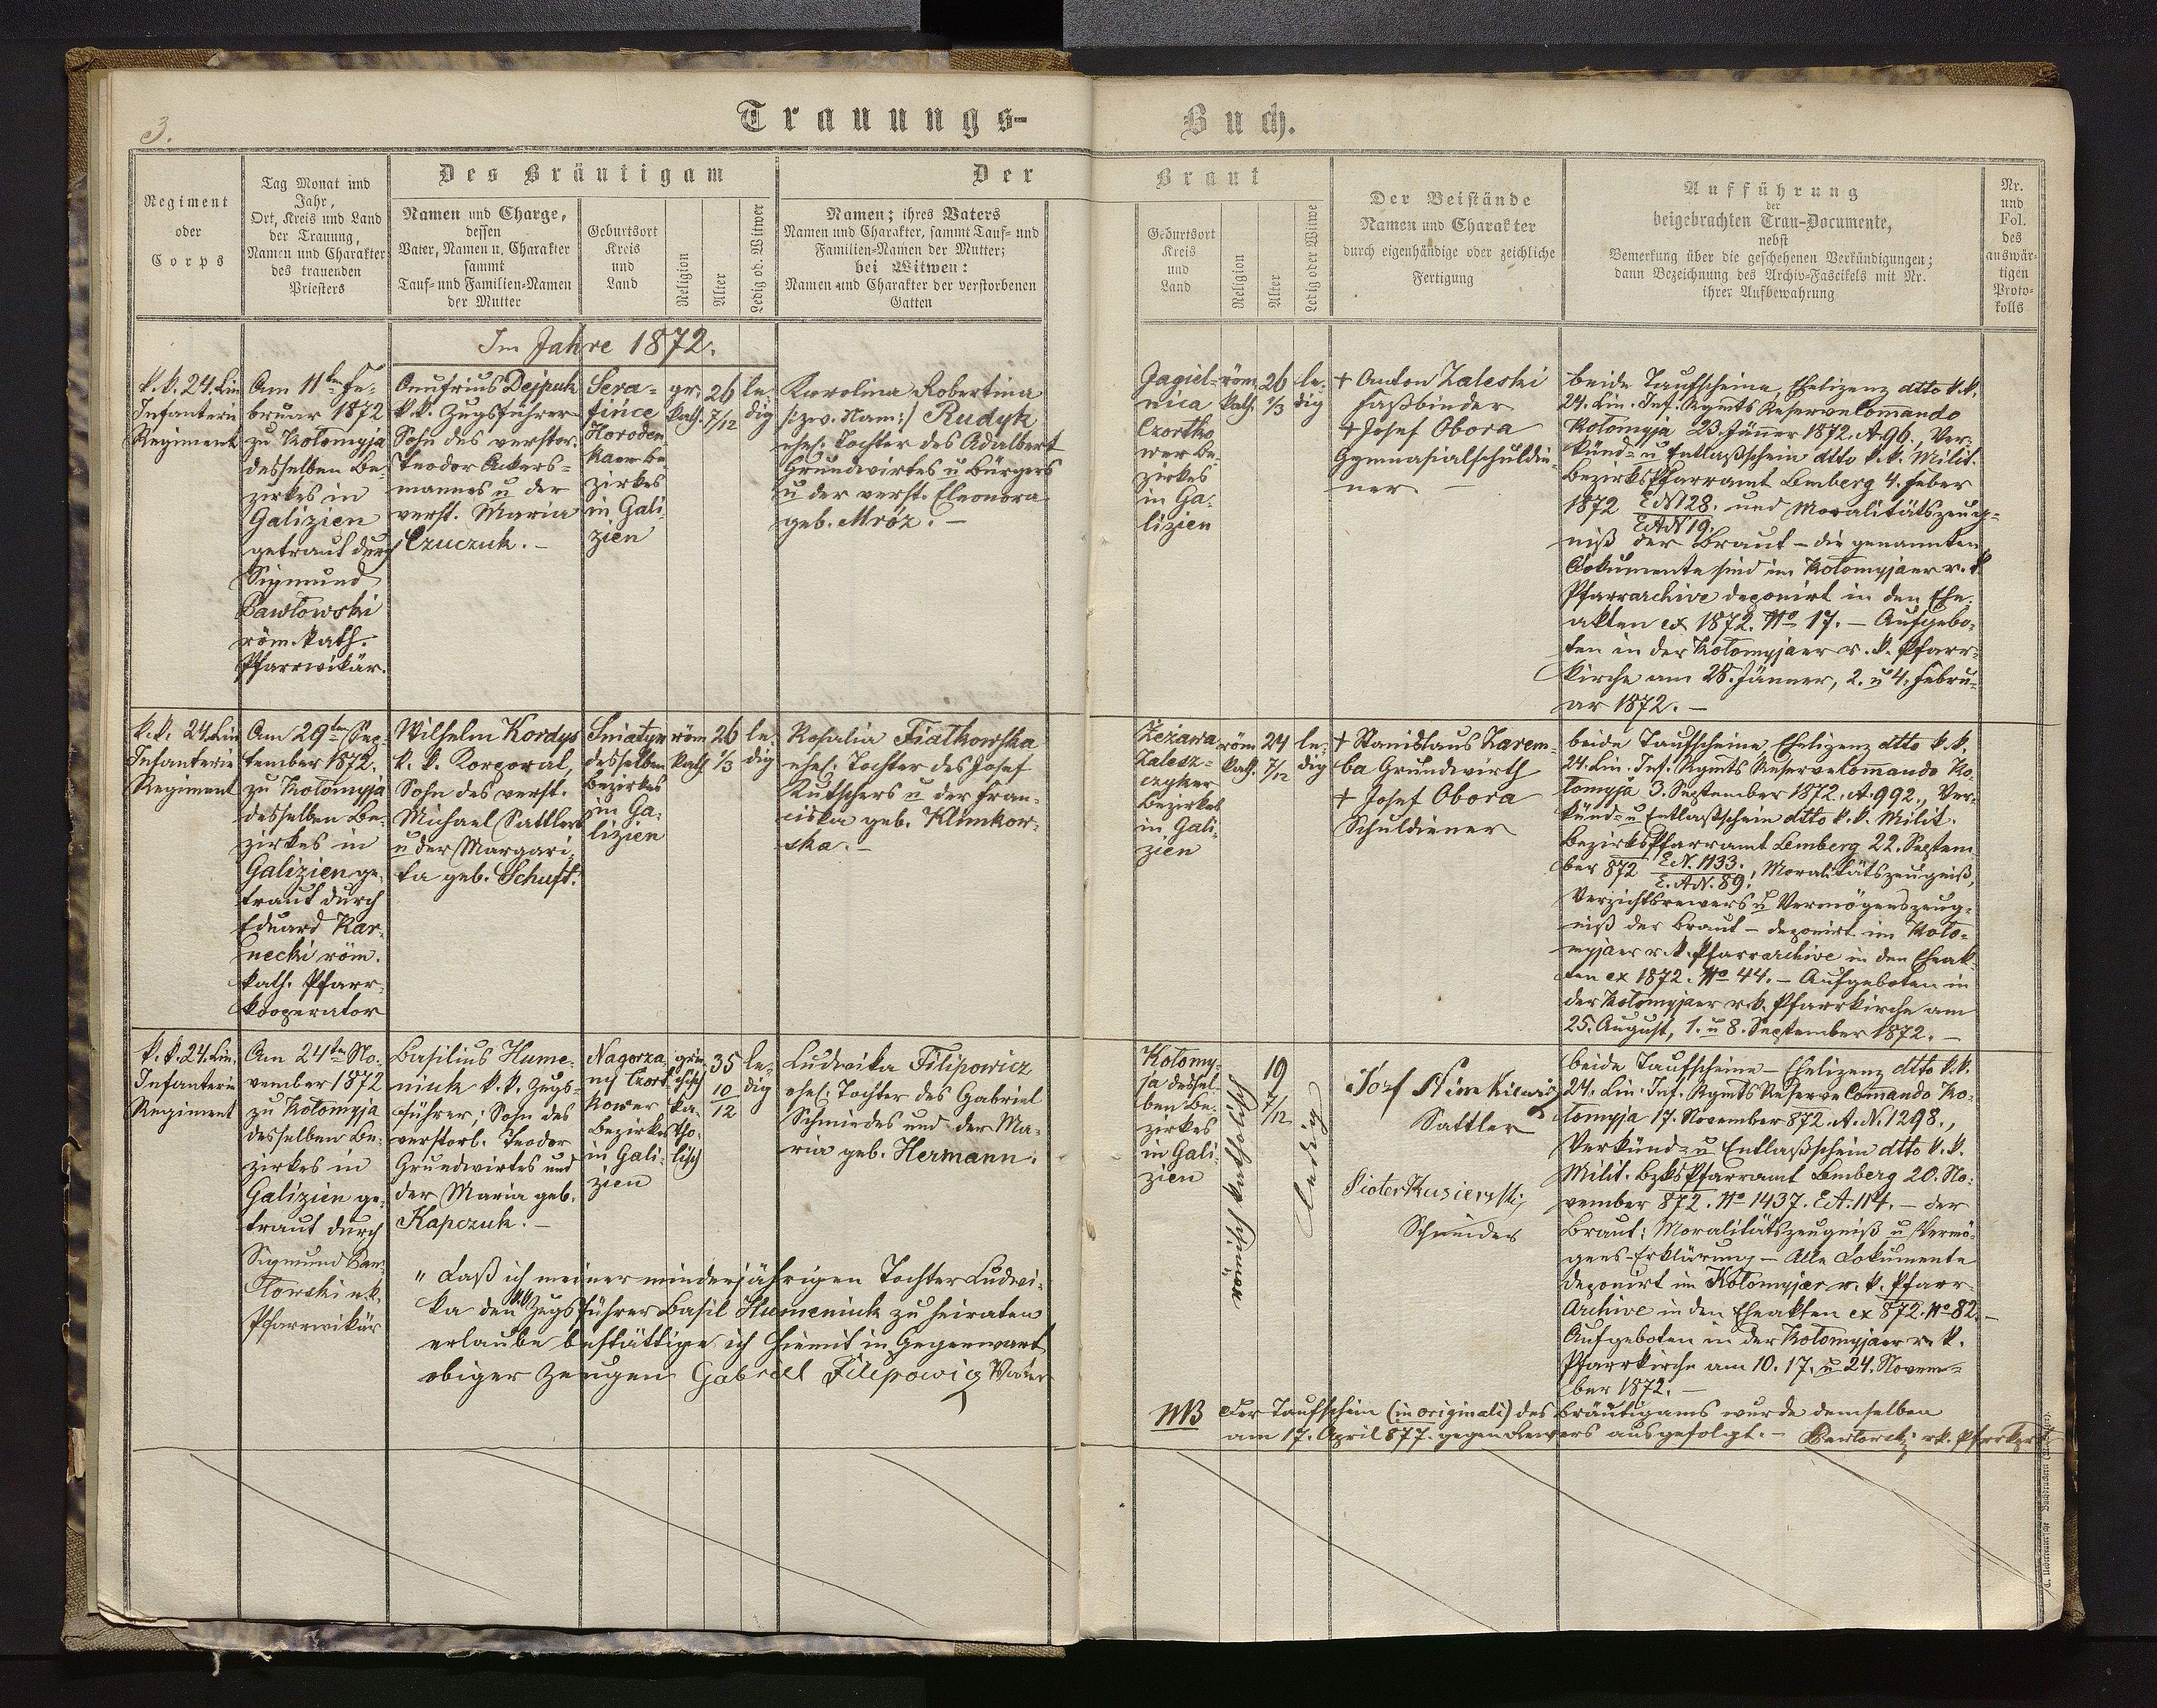 3.
Trauungs-
Buch.
Regiment
oder
Corps
Tag Monat und
Jahr,
Ort, Kreis und Land
der Trauung,
Namen und Charakter
des trauenden
Priesters
Des Bräutigam
Namen und Charge,
dessen
Vater, Namen u. Charakter
sammt
Tauf- und Familien-Namen
der Mutter
Geburtsort
Kreis
und
Land
Religion
Alter
Ledig od. Witwer
Der
Braut
Namen; ihres Vaters
Namen und Charakter, sammt Tauf- und
Familien-Namen der Mutter;
bei Witwen:
Namen und Charakter der verstorbenen
Gatten
Geburtsort
Kreis
und
Land
Religion
Alter
Ledig oder Witwe
Der Beistände
Namen und Charakter
durch eigenhändige oder zeichliche
Fertigung
Aufführung
der
beigebrachten Trau-Documente,
nebst
Bemerkung über die geschehenen Verkündigungen;
dann Bezeichnung des Archiv-Fascikels mit Nr.
ihrer Aufbewahrung
Nr.
und
Fol.
des
auswär-
tigen
Proto-
kolls
Im Jahre 1872.
k. k. 24. Lin
Infanterie
Regiment
Am 11ten Fe-
bruar 1872
zu Kołomyja
desselben Be-
zirkes in
Galizien
getraut durch
Sigmund
Pawłowski
röm. kath.
Pfarrvikär.
Onufrius Dejpuk
k. k. Zugsführer
Sohn des verstor.
Teodor Ackers-
mannes u der
verst. Maria
Czuczuk. –
Sera-
fince
Horoden
kaer Be-
zirkes
in Gali
zien
gr.
kath.
26
7/12
le-
dig
Karolina Robertina
/: zw. Nam :/ Rudyk
ehel. Tochter des Adalbert
Grundwirtes u Bürgers
u der verst. Eleonora
geb. Mróz. –
Jagiel-
nica
Czortko
wer Be-
zirkes
in Ga-
lizien
röm
kath.
26
1/3
le-
dig
+ Anton Zaleski
Faßbinder
+ Josef Obora
Gymnasialschuldie-
ner. –
beide Taufscheine, Ehelizenz dtto k. k.
24. Lin. Inf. Rgmts Reserve Comando
Kołomyja 23. Jänner 1872. A. 96., Ver-
künd- u Entlaßschein dtto k. k. Milit.
Bezirks Pfarramt Lemberg 4. Feber
1872 E N 128. und Moralitätszeug-
E A N 19.
niß der Braut – die genannten
Dokumente sind im Kołomyjaer r. k.
Pfarrarchive deponirt in den Ehe-
akten ex 1872. No 17. – Aufgebo-
ten in der Kołomyjaer r. k. Pfarr-
kirche am 28. Jänner, 2. u 4. Febru-
ar 1872. –
k. k. 24. Lin
Infanterie
Regiment
Am 29ten Sep-
tember 1872.
zu Kołomyja
desselben Be-
zirkes in
Galizien ge-
traut durch
Eduard Kar-
necki röm.
kath. Pfarr-
kooperator
Wilhelm Kordys
k. k. Korporal,
Sohn des verst.
Michael Sattlers
u der Margari-
ta geb. Schuft.
Sniatyn
desselben
Bezirkes
in Ga-
lizien
röm
kath
26
1/3
le-
dig
Rosalia Fiałkowska
ehel. Tochter des Josef
Kutschers u der Fran-
ciska geb. Klimkow-
ska. –
Zeżawa
Zalesz-
czyker
Bezirkes
in Gali-
zien
röm
kath.
24
7/12
le-
dig
+ Stanislaus Zarem-
ba Grundwirth
+ Josef Obora
Schuldiener
beide Taufscheine Ehelizenz dtto k. k.
24. Lin. Inf. Rgmts Reserve Comando Ko-
łomyja 3. September 1872. A. 992., Ver-
künd- u Entlaßschein dtto k. k. Milit.
Bezirks Pfarramt Lemberg 22. Septem
ber 872 E. N. 1133. , Moralitätszeugniß,
E. A N. 89.
Verzichtsrevers u Vermögenszeug-
niß der Braut – deponirt im Koło-
myjaer r. k. Pfarrarchive in den Eheak-
ten ex 1872. No 44. – Aufgeboten in
der Kołomyjaer r. k. Pfarrkirche am
25. August, 1. u 8. September 1872. –
k. k. 24. Lin.
Infanterie
Regiment
Am 24ten No-
vember 1872
zu Kołomyja
desselben Be-
zirkes in
Galizien ge-
traut durch
Sigmund Paw-
łowski r. k.
Pfarrvikär
Basilius Hume-
niuk k. k. Zugs-
führer; Sohn des
verstorb. Teodor
Grundwirtes und
der Maria geb.
Kapczuk. –
Nagorza
ny Czort
kower
Bezirkes
in Gali-
zien
grie-
chisch
ka-
tho-
lisch
35
10
12
le-
dig
Ludwika Filipowicz
ehel. Tochter des Gabriel
Schmiedes und der Ma-
ria geb. Hermann.
Kołomy-
ja dessel-
ben Be-
zirkes
in Gali-
zien
römisch katholisch
19
7/12
ledig
Sattler
Schneider
beide Taufscheine – Ehelizenz dtto k. k.
24. Lin. Inf. Rgmts Reserve Comando Ko-
łomyja 17. November 872. A. N. 1298.,
Verkünd- u Entlaßschein dtto k. k.
Milit. Bzks Pfarramt Lemberg 20. No-
vember 872. No 1437. E A. 114. – der
Braut: Moralitätszeugniß u Vermö-
gens-Erklärung – Alle Dokumente
deponirt im Kołomyjaer r. k. Pfarr
Archive in den Eheakten ex 872. No 82. –
Aufgeboten in der Kołomyjaer r. k.
Pfarrkirche am 10. 17. u 24. Novem-
ber 1872. –
" Daß ich meiner minderjährigen Tochter Ludwi-
ka den kk Zugsführer Basil Humeniuk zu heiraten
erlaube bestättige ich hiemit in Gegenwart
obiger Zeugen Gabriel Filipowicz Vater
NB Der Taufschein (in originali) des Bräutigams wurde demselben
am 17. April 877. gegen Revers ausgefolgt. –